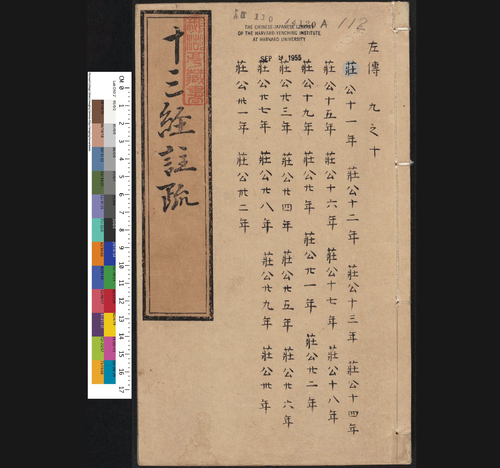 112
THE CHINESE-JAPANESE LIBRARY
OF THE HARVARD-YENCHING INSTITUTE
AT HARVARD UNIVERSITY
SEP 9 1955
左傳 九之十
莊公十一年 莊公十二年 莊公十三年 莊公十四年
莊公十五年 莊公十六年 莊公十七年 莊公十八年
莊公十九年 莊公廿年 莊公廿一年 莊公廿二年
莊公廿三年 莊公廿四年 莊公廿五年 莊公廿六年
莊公廿七年 莊公廿八年 莊公廿九年 莊公卅年
莊公卅一年 莊公卅二年
十三經註疏
CM 0 1 2 3 4 5 6 7 8 9 10 11 12 13 14 15 16 17